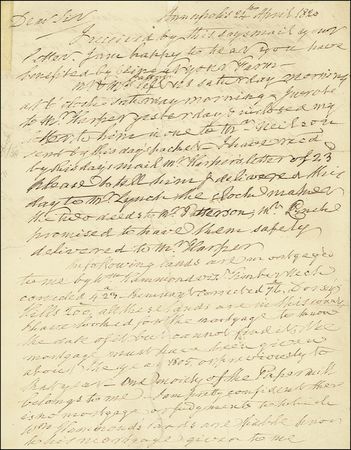 Annapolis 24th April 1820
Dear Sir
I received by this days mail your
letter - I am happy to hear you have
benefited by being at your Farm -
Mr & Mrs left us saturday morning
at 8 o'clock saturday morning I wrote
to Mr Harper yesterday & inclosed my
letter to him in one to Mr Neilson
sent by this days packet - I have recd
by this days mail Mr Harpers letter of 23
Please to tell him I delivered this
day to Mr Lynch the clock maker
the two deeds to Mr Patterson, Mr Lynch
promised to have them safely
delivered to Mr Harper
The following lands are mortgaged
to me by Hammond viz Timber Neck
corrected 423
Hills 200, all these lands are in this county
I have looked for the mortgage to know
the date of it but cannot find it, the
mortgage must have been given
about the year 1805 or previously to
that year - One moiety of the Papermill
belongs to me - I am pretty confident there
is no mortgage or judgments to which
Hammonds lands are liable prior
to his mortgage given to me